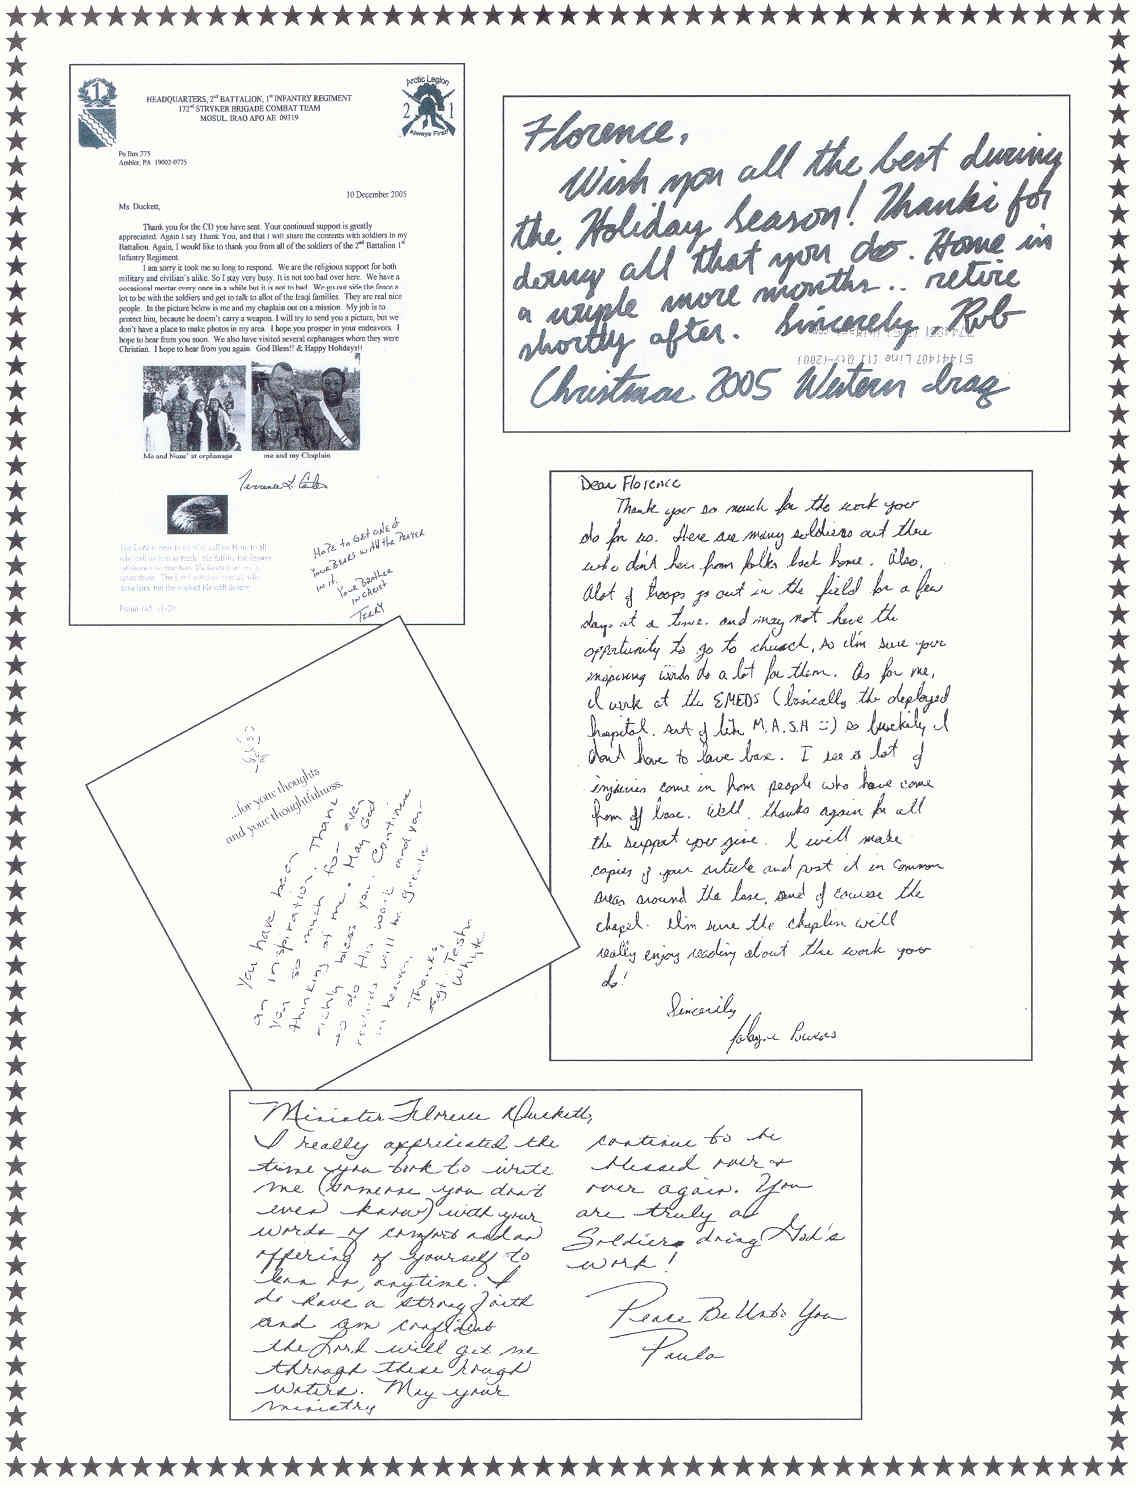 1
HEADQUARTERS, 2nd BATTALION, 1st INFANTRY REGIMENT
172nd STRYKER BRIGADE COMBAT TEAM
MOSUL, IRAQ APO AE 09319
Arctic Legion
2 1
Always First
Po Box 775
Ambler, PA 19002-0775
10 December 2005
Ms Duckett,
Thank you for the CD you have sent. Your continued support is greatly
appreciated. Again I say Thank You, and that I will share the contents with soldiers in my
Battalion. Again, I would like to thank you from all of the soldiers of the 2nd Battalion 1st
Infantry Regiment.
I am sorry it took me so long to respond. We are the religious support for both
military and civilian's alike. So I stay very busy. It is not too bad over here. We have a
occasional mortar every once in a while but it is not to bad. We go out side the fence a
lot to be with the soldiers and get to talk to allot of the Iraqi families. They are real nice
people. In the picture below is me and my chaplain out on a mission. My job is to
protect him, because he doesn't carry a weapon. I will try to send you a picture, but we
don't have a place to make photos in my area. I hope you prosper in your endeavors. I
hope to hear from you soon. We also have visited several orphanages where they were
Christian. I hope to hear from you again. God Bless!! & Happy Holidays!!
Me and Nuns' at orphanage
me and my Chaplain
HoPe to GET ONE of
Your BEARS WITH the PRAYER
IN it.
Your Brother
IN CHRIST
TERRY
Florence,
Wish you all the best during
the Holiday Season! Thanks for
doing all that you do. Home in
a couple more months.. retire
shortly after. Sincerely Rob
Christmas 2005 Western Iraq
Dear Florence
Thank you so much for the work your
do for us. There are many soldiers out there
who don't hear from folks back home. Also,
Alot of troops go out in the field for a few
days at a time and may not have the
opportunity to go to church, so I'm sure your
inspiring words do a lot for them. As for me,
I work at the EMEDS (basically the deployed
hospital. sort of like M.A.S.H :) so luckily I
don't have to leave base. I see a lot of
injuries come in from people who have come
from off base. Well, thanks again for all
the support your give. I will make
copies of your article and post it in common
areas around the base, and of course the
chapel. I'm sure the chaplin will
really enjoy reading about the work your
do!
Sincerily
Powers
...for your thoughts
and your thoughtfulness.
You have been
an inspiration. Thank
you so much for even
thinking of me. May God
richly bless you. Continue
to do His work and your
rewards will be greater
in heaven.
Thanks,
Sgt. Tosha
Whyte
Minister Florence Duckett,
I really appriciated the
time you took to write
me (someone you don't
even know) with your
words of comfort and an
offering of yourself to
lean on, anytime. I
do have a strong faith
and am confident
the Lord will get me
through these rough
waters. May your
ministry
continue to be
blessed over &
over again. You
are truly a
Soldier doing God's
work!
Peace Be Unto You
Paula